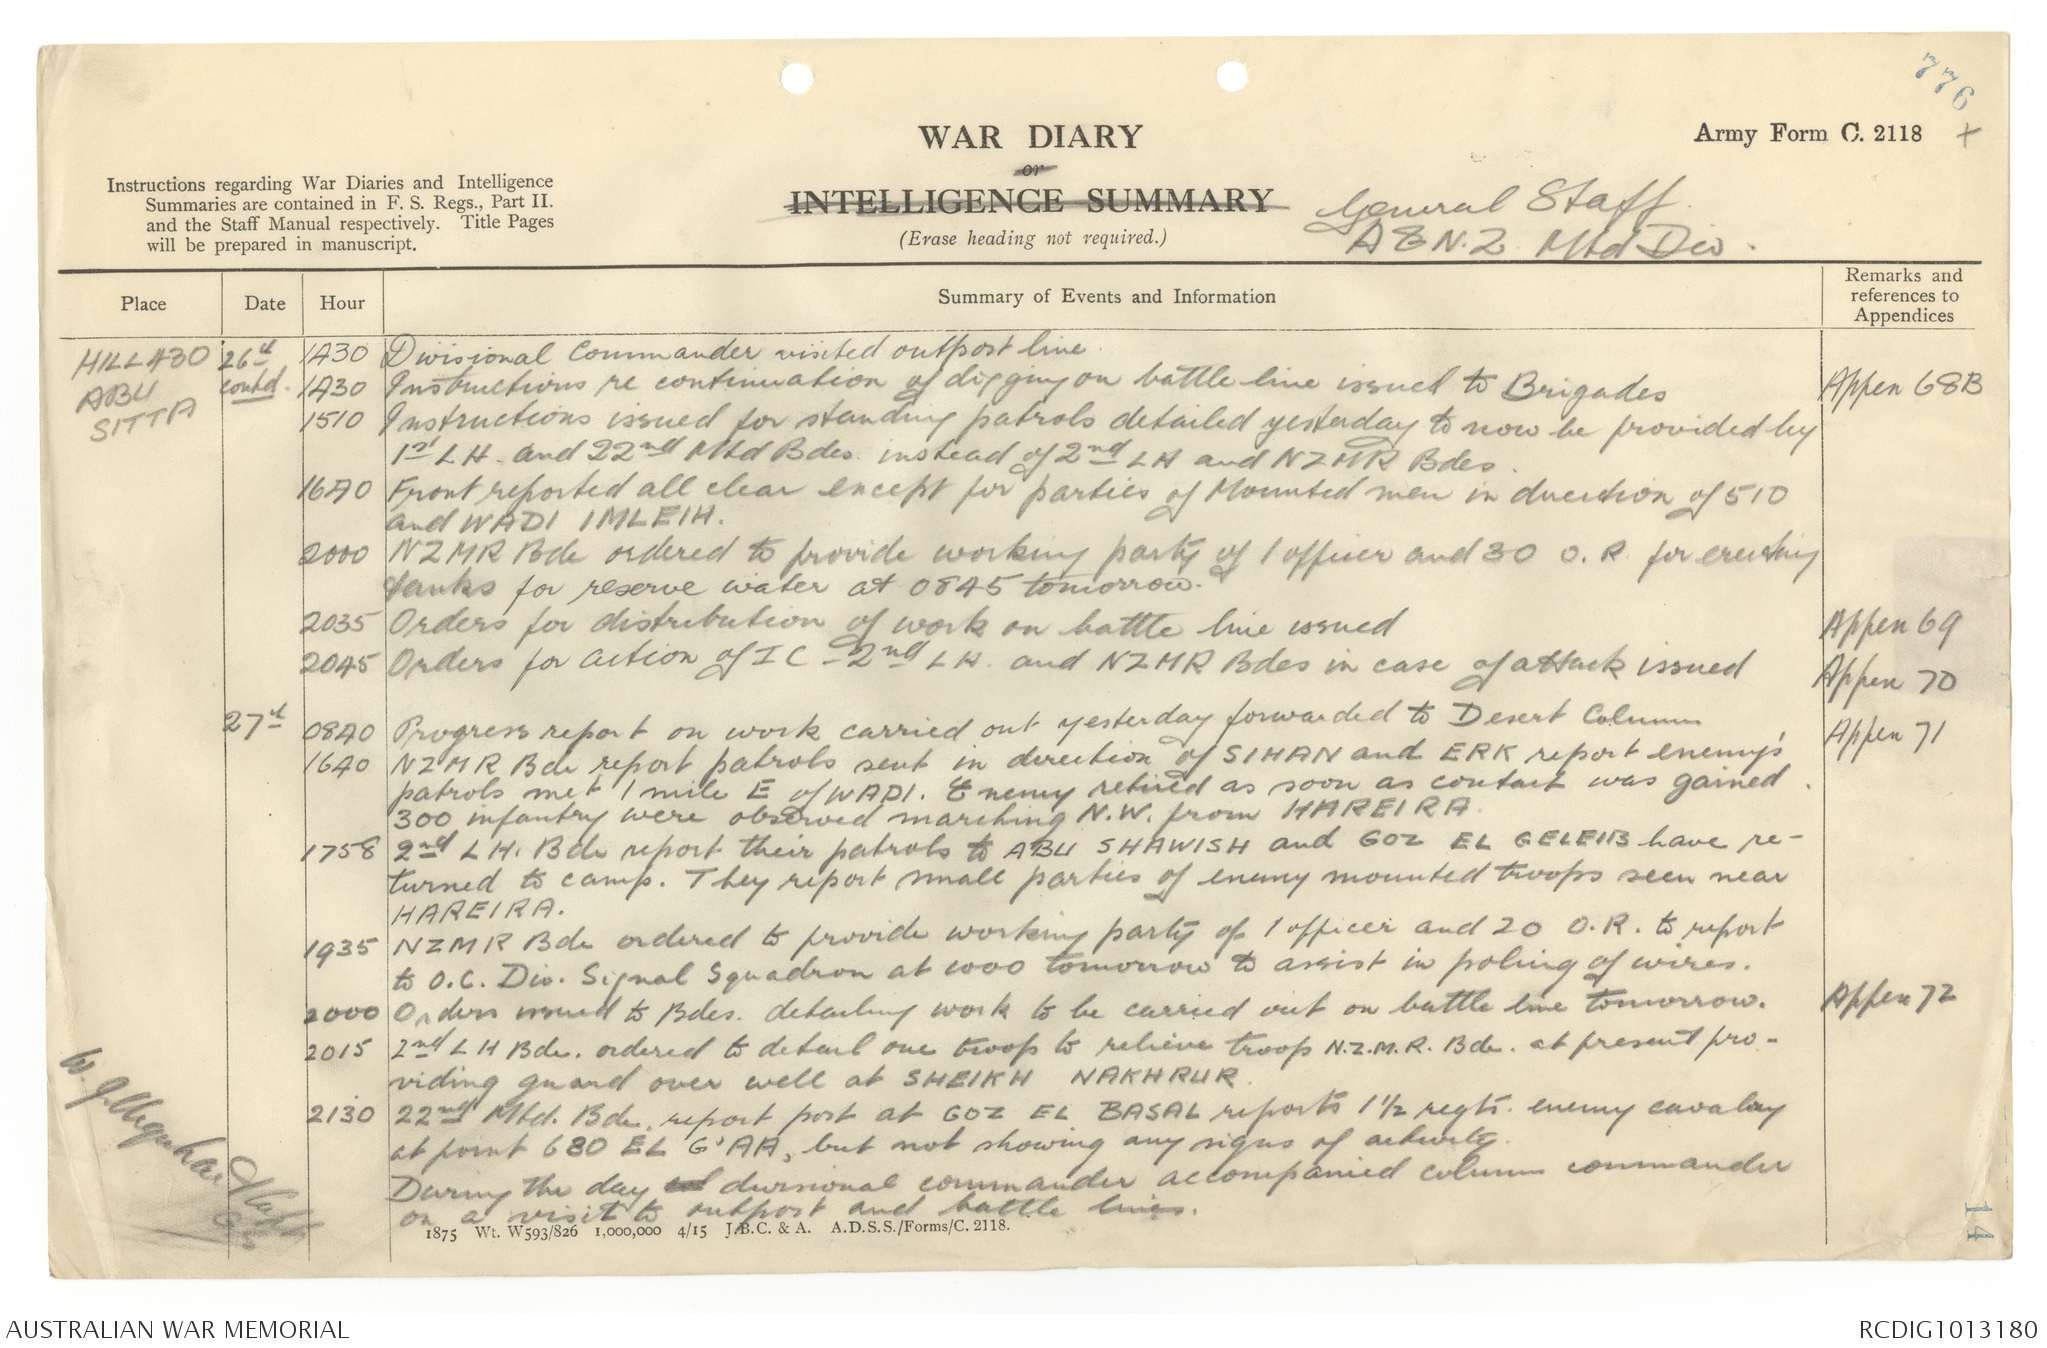 776
+
WAR DIARY
or
INTELLIGENCE SUMMARY
(Erase heading not required.)
Army Form C. 2118
Instructions regarding War Diaries and Intelligence
Summaries are contained in F. S. Regs., Part II.
and the Staff Manual respectively. Title Pages
will be prepared in manuscript.
General Staff
A & N.Z. Mtd Div.
Place Date Hour Summary of Events and Information Remarks and references to Appendices
HILL 430 26th 1430 Divisional Commander visited outpost line.
ABU contd. 1430 Instructions re continuation of digging on battle line issued to Brigades Appen 68B
SITTA 1510 Instructions issued for standing patrols detailed yesterday to now be provided by
1st LH. and 22nd Mtd Bdes. instead of 2nd LH and NZMR Bdes.
1640 Front reported all clear except for parties of Mounted men in direction of 510
and WADI IMLEIH.
2000 NZMR Bde ordered to provide working party of 1 officer and 30 O.R. for erecting
tanks for reserve water at 0845 tomorrow.
2035 Orders for distribution of work on battle line issued Appen 69
2045 Orders for action of IC - 2nd LH. and NZMR Bdes in case of attack issued Appen 70
27th 0840 Progress report on work carried out yesterday forwarded to Desert Column Appen 71
1640 NZMR Bde report patrols sent in direction of SIHAN and ERK report enemy's
patrols met 1 mile E of WADI. Enemy retired as soon as contact was gained.
300 infantry were observed marching N.W. from HAREIRA.
1758 2nd LH. Bde report their patrols to ABU SHAWISH and GOZ EL GELEIB have re-
turned to camp. They report small parties of enemy mounted troops seen near
HAREIRA.
1935 NZMR Bde ordered to provide working party of 1 officer and 20 O.R. to report
to O.C. Div. Signal Squadron at 1000 tomorrow to assist in poling of wires.
2000 Orders issued to Bdes. detailing work to be carried out on battle line tomorrow. Appen 72
2015 2nd LH Bde. ordered to detail one troop to relieve troop N.Z.M.R. Bde. at present pro-
viding guard over well at SHEIKH NAKHRUR.
2130 22nd Mtd. Bde. report post at GOZ EL BASAL reports 1 1/2 regts. enemy cavalry
at point 680 EL G'AA, but not showing any signs of activity.
During the day divisional commander accompanied column commander
on a visit to outpost and battle lines.
1875 Wt. W593/826 1,000,000 4/15 J.B.C. & A. A.D.S.S./Forms/C. 2118.
14
AUSTRALIAN WAR MEMORIAL
RCDIG1013180